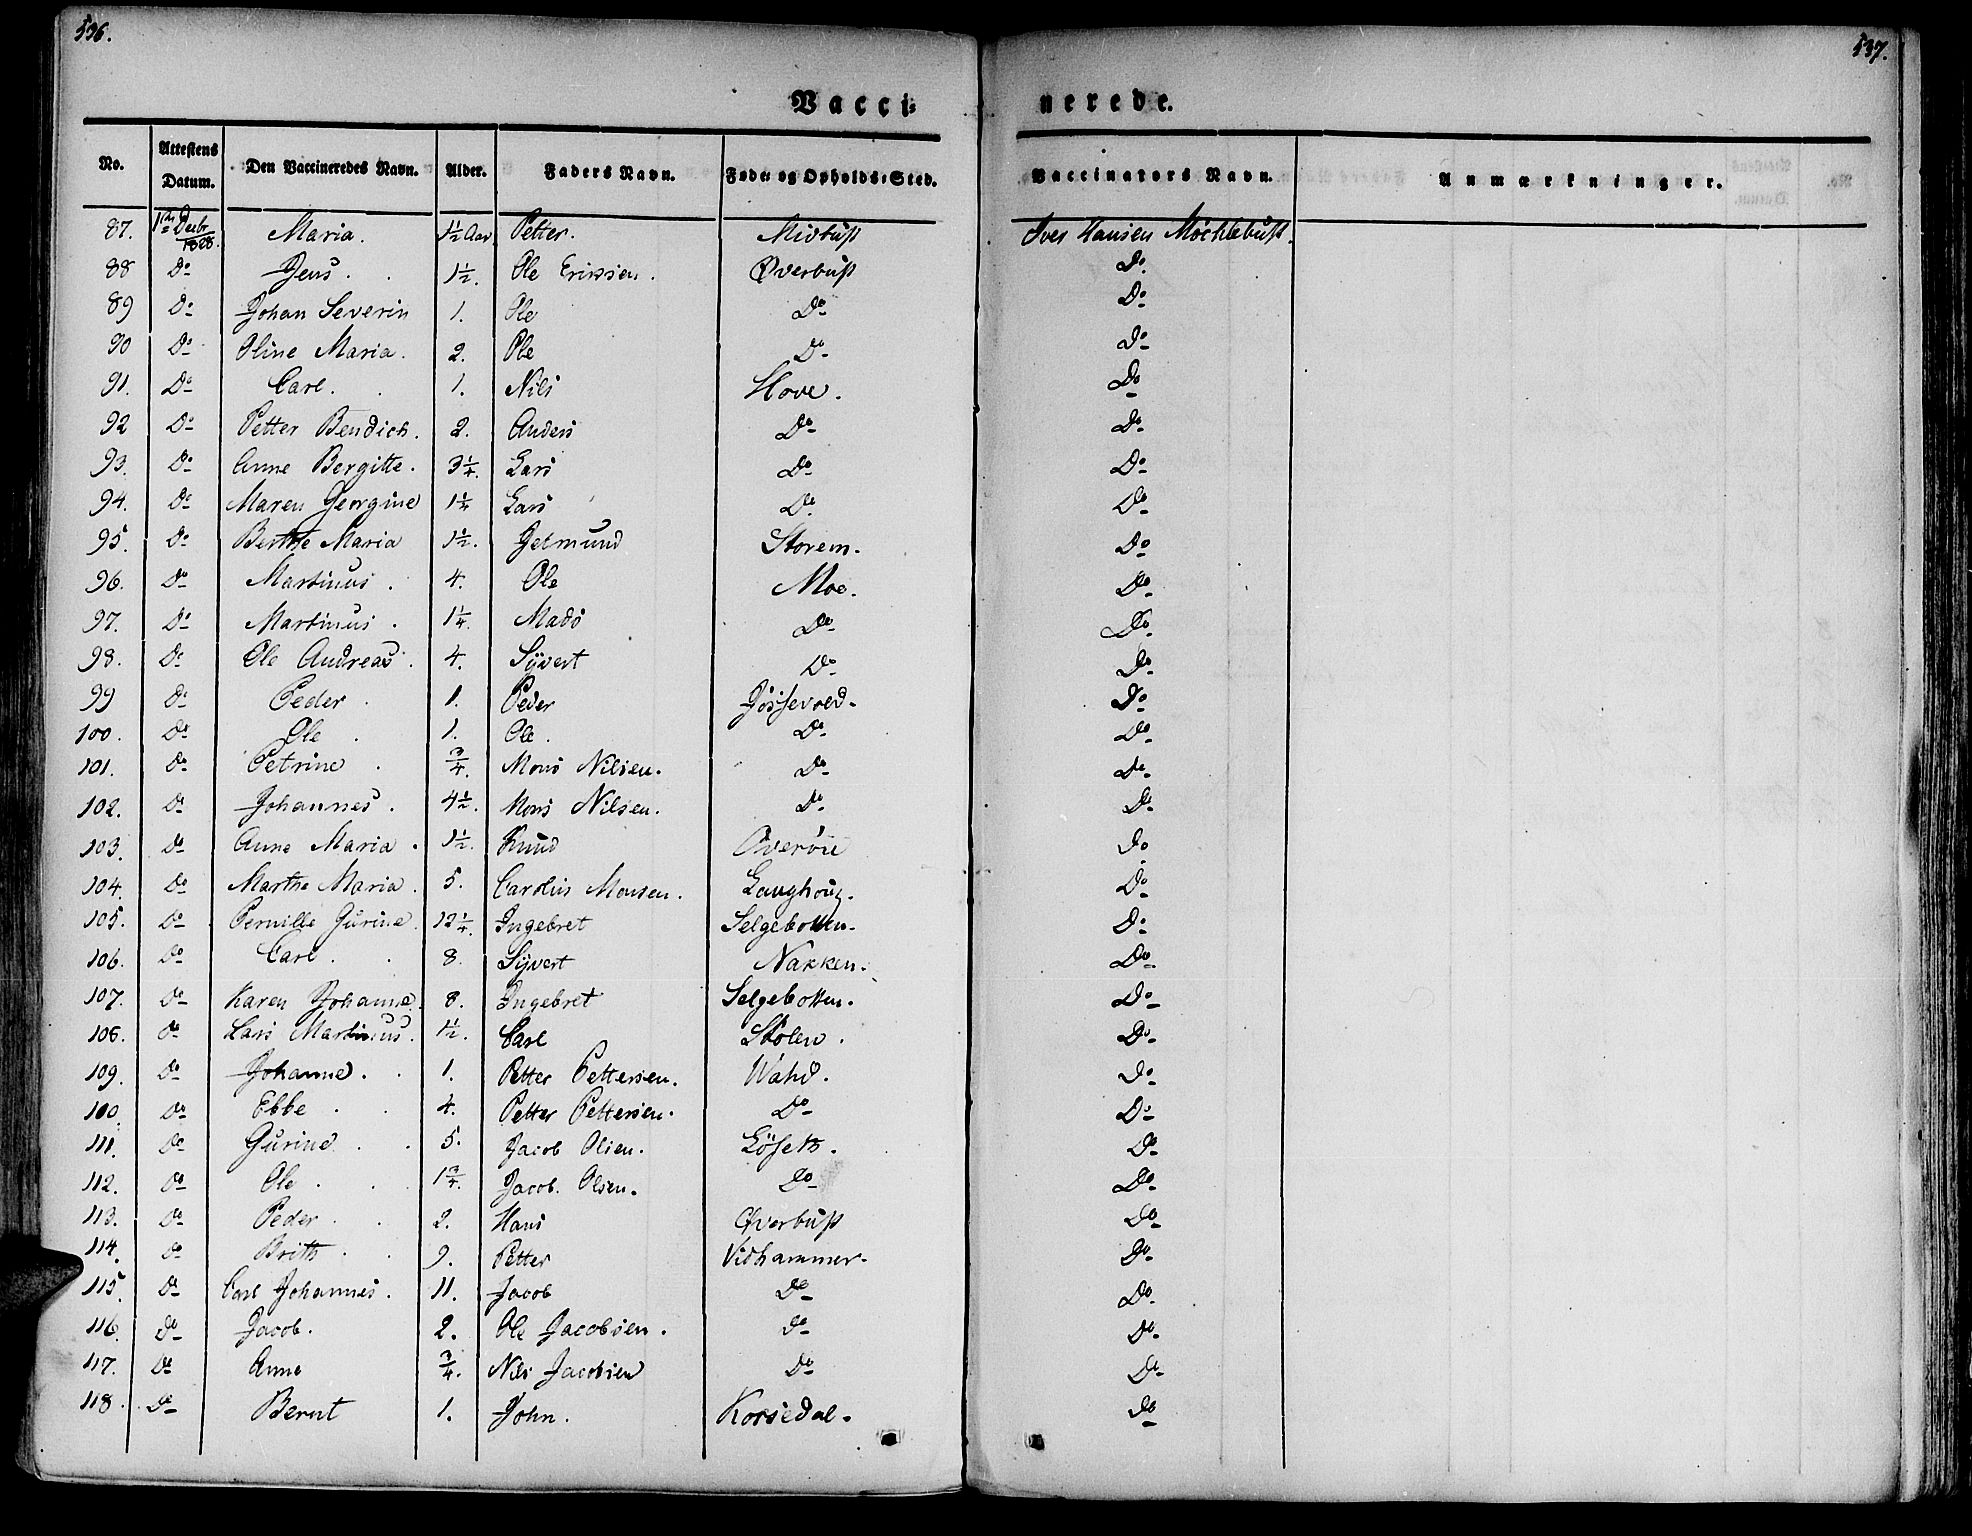 536.
537.
Vacci-
nerede.
No. Attestens Datum. Den Vaccineredes Navn. Alder. Faders Navn. Føde- og Opholds-Sted. Vaccinators Navn. Anmærkninger.
87. 1ste Decbr 1828. Maria. 1½ Aar Petter. Midbust Iver Hansen Mochlebust.
88 Do Jens. 1½. Ole Erichsen. Øverbust Do
89 Do Johan Severin 1. Ole Do Do
90 Do Oline Maria. 2. Ole Do Do
91. Do Carl. 1. Nils Hove. Do
92 Do Petter Bendich. 2. Anders Do Do
93. Do Anne Bergitte. 3¼. Lars Do Do
94. Do Maren Georgine 1¼ Lars Do Do
95. Do Berthe Maria 1½. Gelmund Storem. Do
96. Do Martinus. 4. Ole Moe. Do
97. Do Martinus. 1¼. Mads Do Do
98. Do Ole Andreas. 4. Syvert Do Do
99 Do Peder. 1. Peder Gjøssevold. Do
100. Do Ole. 1. Ole. Do Do
101. Do Petrine. ¾. Mons Nilsen. Do Do
102. Do Johannes. 4½. Mons Nilsen. Do Do
103. Do Anne Maria. 1½. Knud Overøie Do
104. Do Marthe Maria. 5. Carolus Monsen. Langhoug. Do
105. Do Pernille Gurine. 12¼. Ingebret Selgebotten. Do
106. Do Carl. 8. Syvert Nakken. Do
107. Do Karen Johanne. 8. Ingebret Selgebotten. Do
108. Do Lars Martinus. 1½. Carl Stølen. Do
109. Do Johanne. 1. Petter Pettersen. Wahd. Do
110. Do Ebbe. 4. Petter Pettersen. Do Do
111. Do Gurine. 5. Jacob Olsen. Løseth. Do
112. Do Ole. 1¾. Jacob. Olsen. Do Do
113. Do Peder. 2. Hans Øverbust Do
114. Do Brith. 9. Petter Vidhammer. Do
115. Do Carl Johannes. 11. Jacob Do Do
116. Do Jacob. 2. Ole Jacobsen. Do Do
117. Do Anne ¾. Nils Jacobsen Do Do
118. Do Bernt 1. John. Korsedal. Do